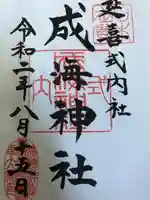 延喜式内社
成海神社
令和二年八月十五日